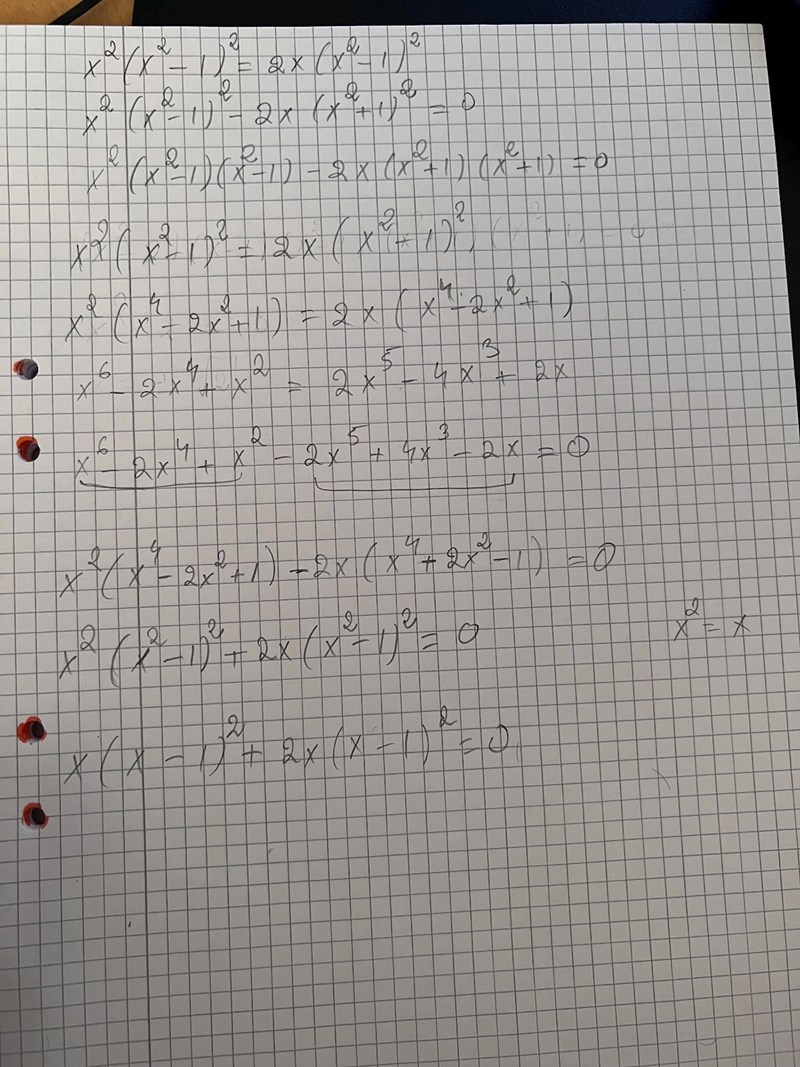 x²(x²-1)² = 2x(x²-1)²
x²(x²-1)² - 2x(x²+1)² = 0
x²(x²-1)(x²-1) - 2x(x²+1)(x²+1) = 0
x²(x²-1)² = 2x(x²+1)²
x²(x⁴-2x²+1) = 2x(x⁴-2x²+1)
x⁶-2x⁴+x² = 2x⁵-4x³+2x
x⁶-2x⁴+x²-2x⁵+4x³-2x = 0
x²(x⁴-2x²+1)-2x(x⁴+2x²-1) = 0
x²(x²-1)²+2x(x²-1)² = 0
x² = x
x(x-1)²+2x(x-1)² = 0